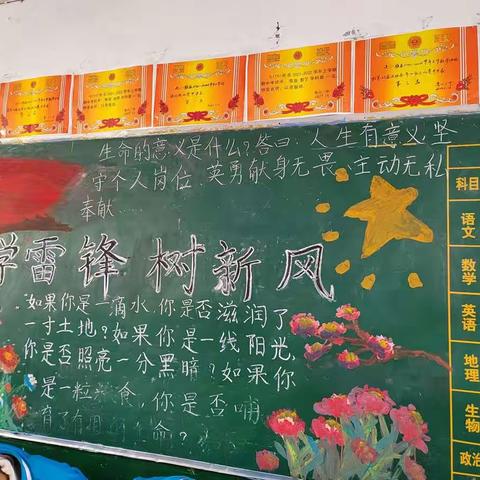 生命的意义是什么?答曰:人生有意义,坚
守个人岗位、英勇献身无畏、主动无私
奉献……
学雷锋 树新风
如果你是一滴水,你是否滋润了
一寸土地?如果你是一线阳光,
你是否照亮一分黑暗?如果你
是一粒粮食,你是否哺
育了有用的生命?
科目
语文
数学
英语
地理
生物
政治